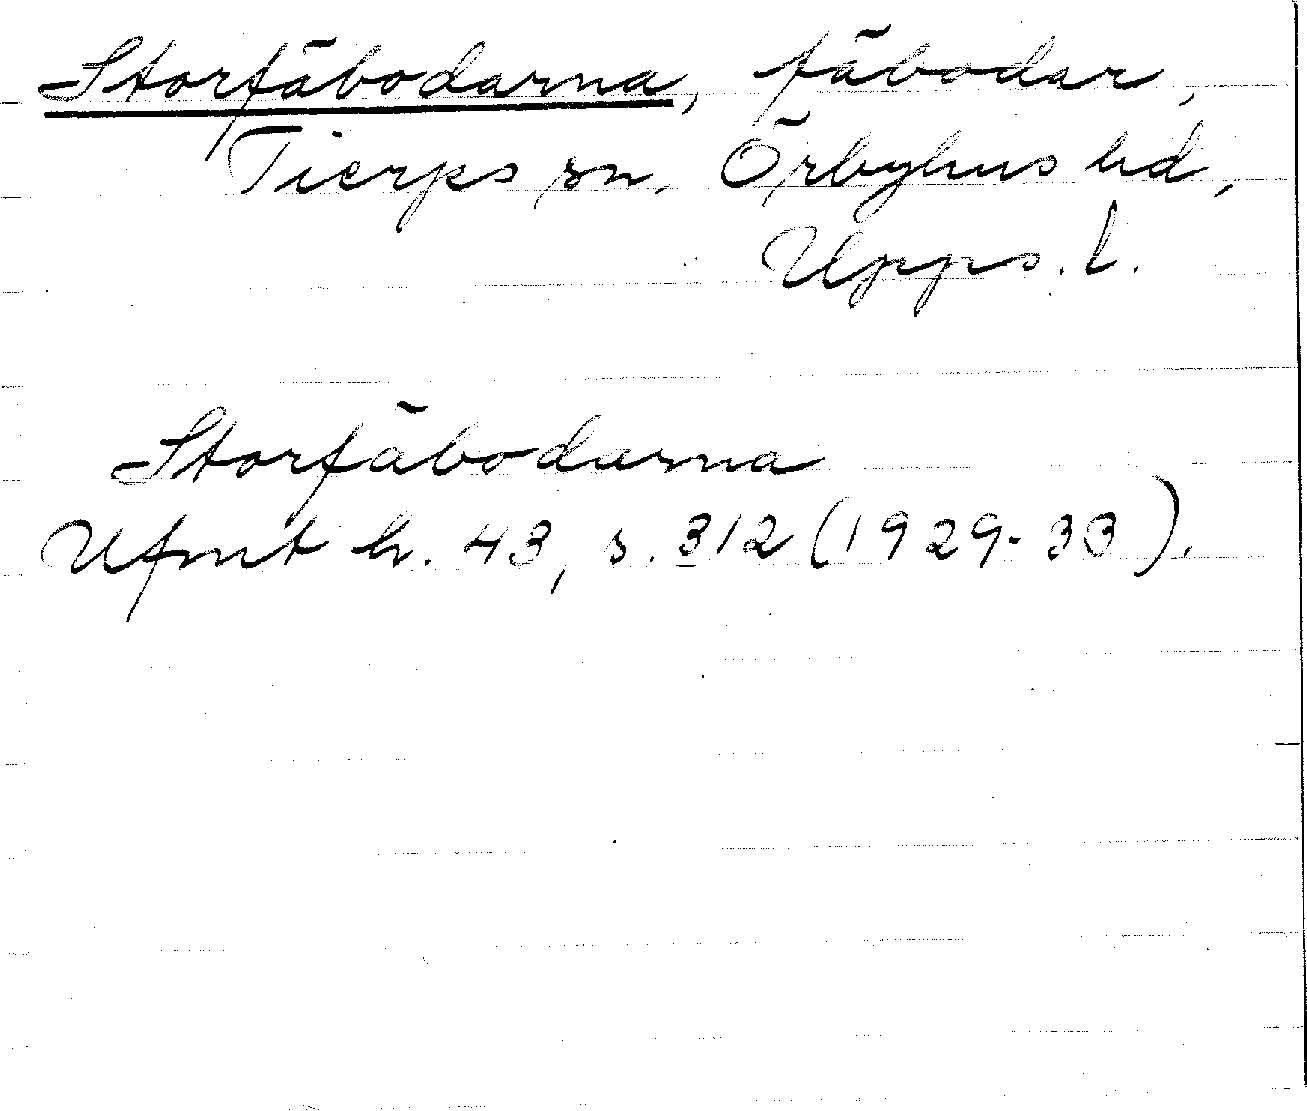 Storfäbodarna, fäbodar,
Tierps sn. Örbyhus hd,
Upps. l.
Storfäbodarna
Ufmt h. 43, s. 312 (1929-33).